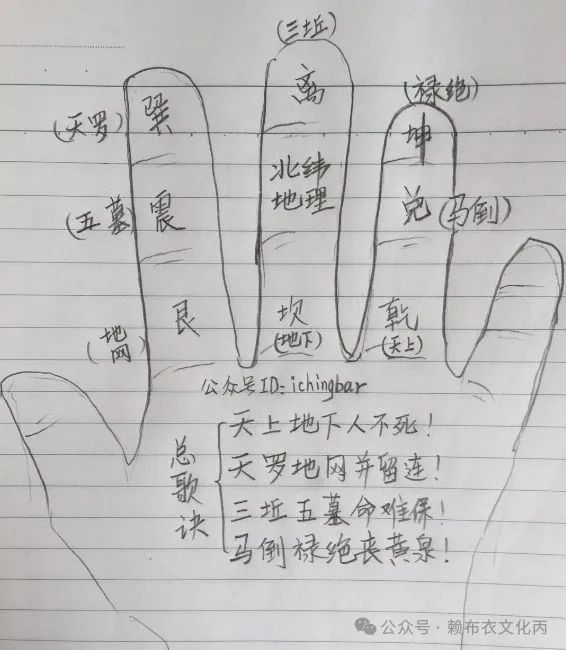 (三坵)
(禄绝)
离
巽
(天罗)
坤
北纬
地理
(五墓)
震
兑
(马倒)
艮
坎
乾
(地网)
(地下)
(天上)
公众号ID:ichingbar
总歌诀
天上地下人不死!
天罗地网并留连!
三坵五墓命难保!
马倒禄绝丧黄泉!
公众号·赖布衣文化丙